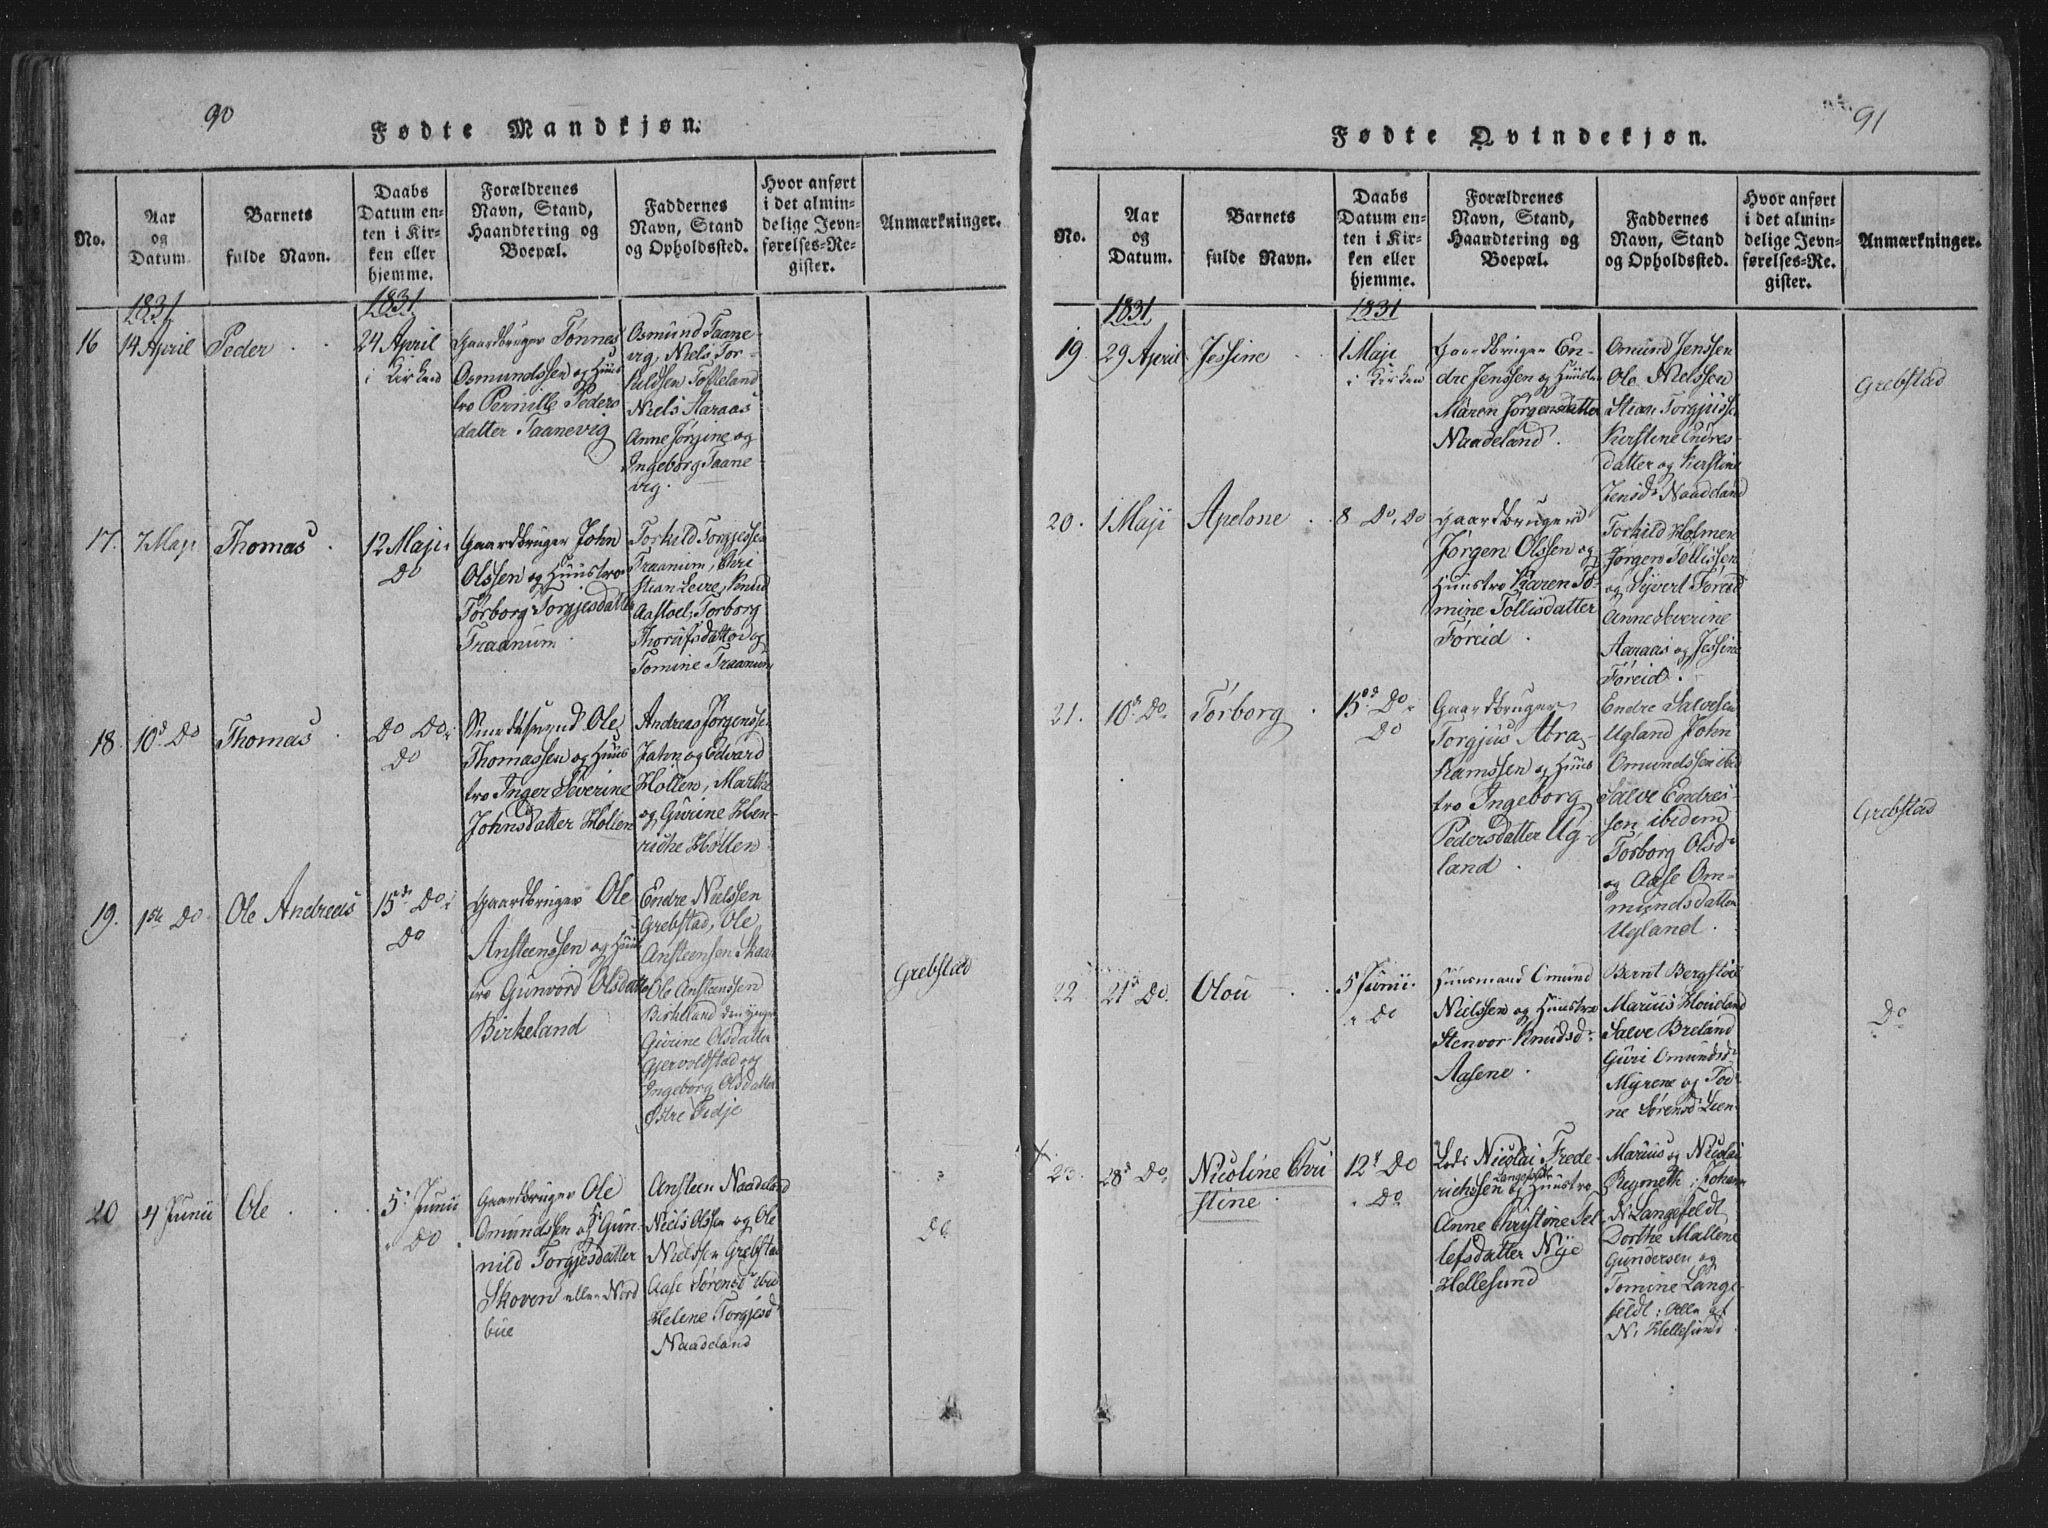 90
Fødte Mandkjøn.
No.
Aar
og
Datum.
Barnets
fulde Navn.
Daabs
Datum en-
ten i Kir-
ken eller
hjemme.
Forældrenes
Navn, Stand,
Haandtering og
Boepæl.
Faddernes
Navn, Stand
og Opholdssted.
Hvor anført
i det almin-
delige Jevn-
førelses-Re-
gister.
Anmærkninger.
1831
1831
16
14 April
Peder
24 April
i Kirken
Gaardbruger Tønnes
Osmundssen og Huus
tro Pernille Peders
datter Taanevig
Osmund Taane-
vig, Niels Tor-
kildsen Tofteland
Niels Aaraas
Anne Jørgine og
Ingeborg Taane-
vig.
17.
7 Maji
Thomas
12 Maji
Do
Gaardbruger John
Olssen og Huustro
Torborg Torgjesdatter
Traanum
Torkild Torgjessen
Traanum, Chri
stian Leire, Knud
Aastoel, Torborg
datter og
Tomine Traanum
18.
10d Do
Thomas
Do Do
Do
Smedsvend Ole
Thomassen og Huus
tro Inger Severine
Johnsdatter Høllen
Andreas Jørgenssen
Jahn og Edvard
Høllen, Marthe
og Gurine Hen-
riche Høllen
19.
1ste Do
Ole Andreas
15de Do
Do
Gaardbruger Ole
Ansteenssen og Huus
tro Gunvord Olsdatter
Birkeland
Endre Nielssen
Grebstad, Ole
Ansteensen Skaar
Ole Ansteenssen
Birkeland den yngre
Gurine Olsdatter
Gjervoldstad og
Ingeborg Olsdatter
Østre Tedje
Grebstad
20
4 Junii
Ole
5 Junii
Do
Gaardbruger Ole
Omundssen og H: Gun-
nild Torgjesdatter
Skoven eller Nord
bue
Ansteen Naadeland
Niels Olssen og Ole
Nielssen Grebstad
Aase Sørensd: ibid
Helene Torgjesd
Naadeland
Do
91
Fødte Qvindekjøn.
No.
Aar
og
Datum.
Barnets
fulde Navn.
Daabs
Datum en-
ten i Kir-
ken eller
hjemme.
Forældrenes
Navn, Stand,
Haandtering og
Boepæl.
Faddernes
Navn, Stand
og Opholdssted.
Hvor anført
i det almin-
delige Jevn-
førelses-Re-
gister.
Anmærkninger.
1831
1831
19.
29 April
Jessine
1 Maji
i Kirken
Gaardbruger En-
dre Jenssen og Huustro
Maren Jørgensdatter
Naadeland.
Omund Jenssen
Ole Nielssen
Stian Torgjussen
Kirstine Endres-
datter og Kirstine
Jensdr Naadeland
Grebstad
20.
1 Maji
Apelone
8 Do, Do
Gaardbruger
Jørgen Olssen og
Huustro Karen To-
mine Tollisdatter
Føreid.
Torkild Holmen
Jørgen Tollissen
og Syvert Føreid
Anne Severine
Aaraas og Jessine
Føreid.
21.
10d Do
Torborg
15de Do
Do
Gaardbruger
Torgjus Abra-
hamssen og Huus
tro Ingeborg
Pedersdatter Ug-
land
Endre Salvesen
Ugland, John
Omundssen ibid
Salve Endres-
sen ibidem
Torborg Olsd
og Aase Om-
mundsdatter
Ugland.
Grebstad
22
21d Do
Olou
5 Junii
Do
Huusmand Omund
Nielssen og Huustro
Stenvor Knudsdr
Aasene.
Bernt Bergstøl
Marius Houeland
Salve Breland
Guri Omundsdr
Myrene og Tod-
ne Sørensd: Lien
Do
x
23.
28d Do
Nicoline Chri
stine
12t Do
Do
Lods Nicolai Frede
richssen Langefeldt og Huustro
Anne Christine Tel
lefsdatter Nye
Hellesund
Marius og Nicolai
Reymert; Johan
N: Langefeldt
Dorthe Mallene
Gundersen og
Tomine Lange-
feldt: Alle af
N: Hellesund